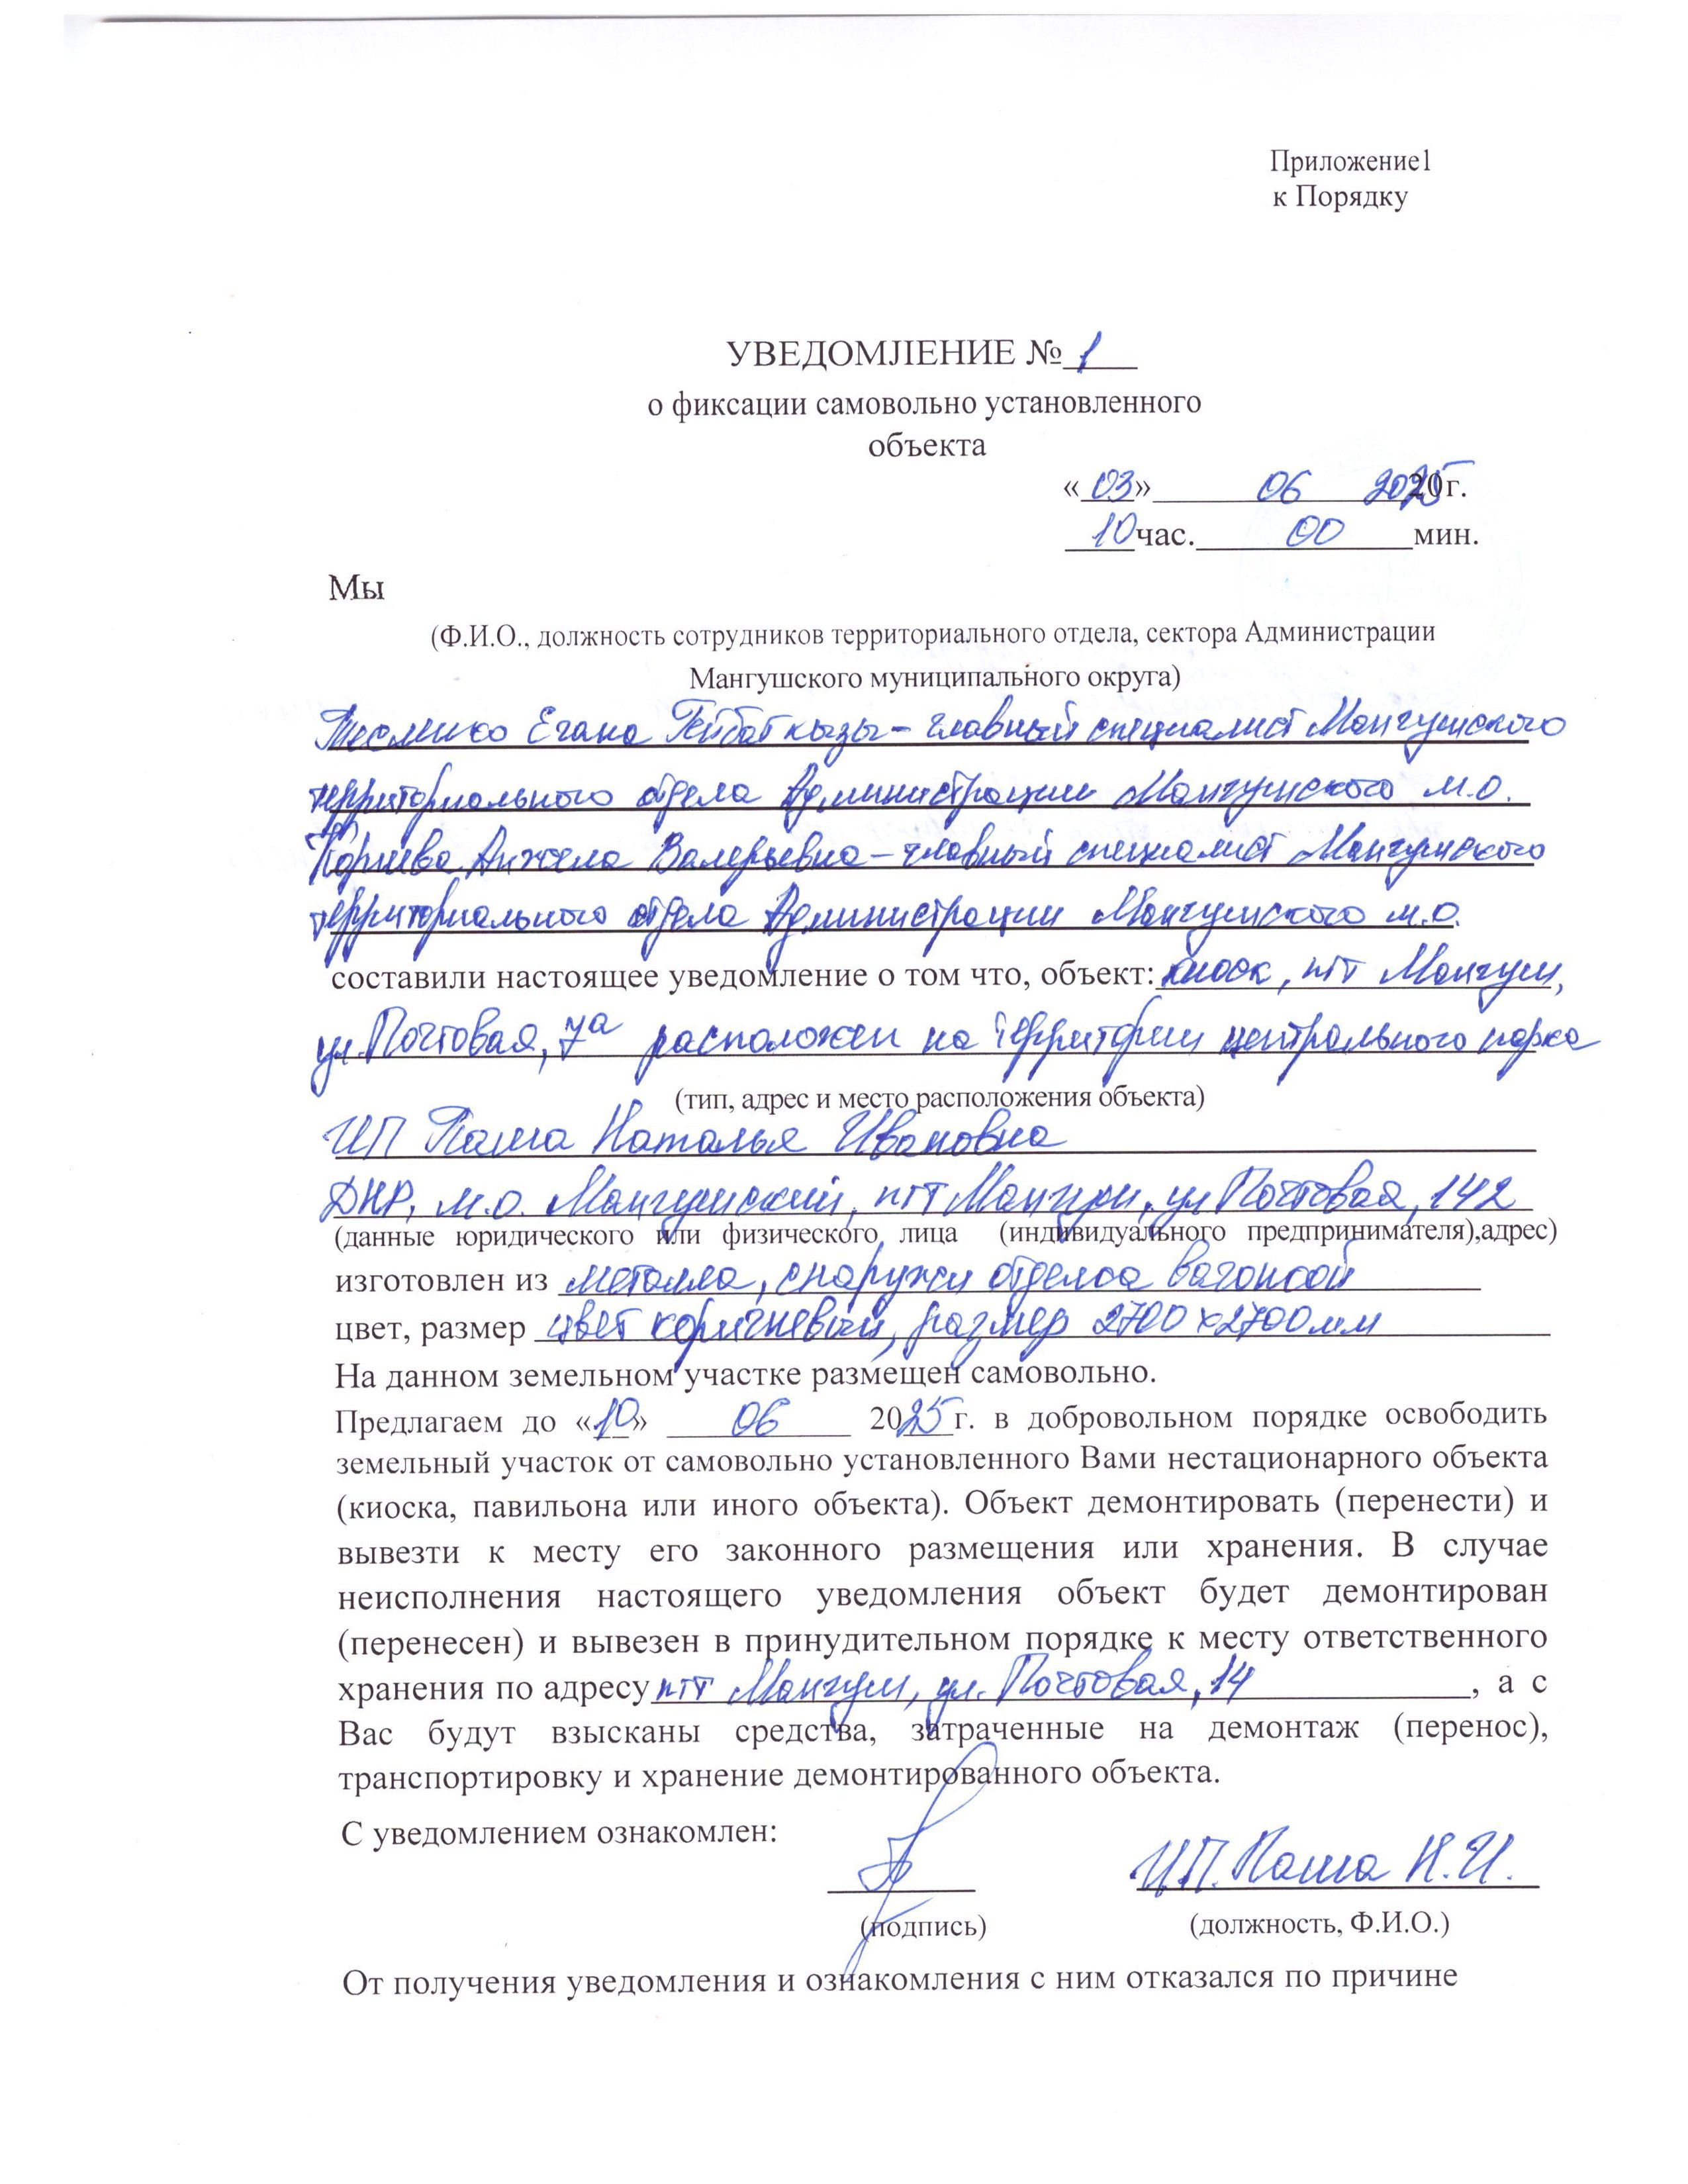 Приложение1
к Порядку
УВЕДОМЛЕНИЕ № 1
о фиксации самовольно установленного
объекта
«03» 06 2025 20 г.
10 час. 00 мин.
Мы
(Ф.И.О., должность сотрудников территориального отдела, сектора Администрации
Мангушского муниципального округа)
Егана кызы - главный специалист Мангушского
территориального отдела Администрации Мангушского м.о.
Анжела Валерьевна - главный специалист Мангушского
территориального отдела Администрации Мангушского м.о.
составили настоящее уведомление о том что, объект: киоск, пгт Мангуш,
ул. Почтовая, 7а расположен на территории центрального парка
(тип, адрес и место расположения объекта)
ИП Паша Наталья Ивановна
ДНР, м.о. Мангушский, пгт Мангуш, ул Почтовая, 142
(данные юридического или физического лица (индивидуального предпринимателя),адрес)
изготовлен из металла, снаружи вагонкой
цвет, размер цвет коричневый, размер 2700х2700мм
На данном земельном участке размещен самовольно.
Предлагаем до «10» 06 2025 г. в добровольном порядке освободить
земельный участок от самовольно установленного Вами нестационарного объекта
(киоска, павильона или иного объекта). Объект демонтировать (перенести) и
вывезти к месту его законного размещения или хранения. В случае
неисполнения настоящего уведомления объект будет демонтирован
(перенесен) и вывезен в принудительном порядке к месту ответственного
хранения по адресу пгт Мангуш, ул. Почтовая, 14 , а с
Вас будут взысканы средства, затраченные на демонтаж (перенос),
транспортировку и хранение демонтированного объекта.
С уведомлением ознакомлен:
ИП. Паша Н.И.
(подпись) (должность, Ф.И.О.)
От получения уведомления и ознакомления с ним отказался по причине